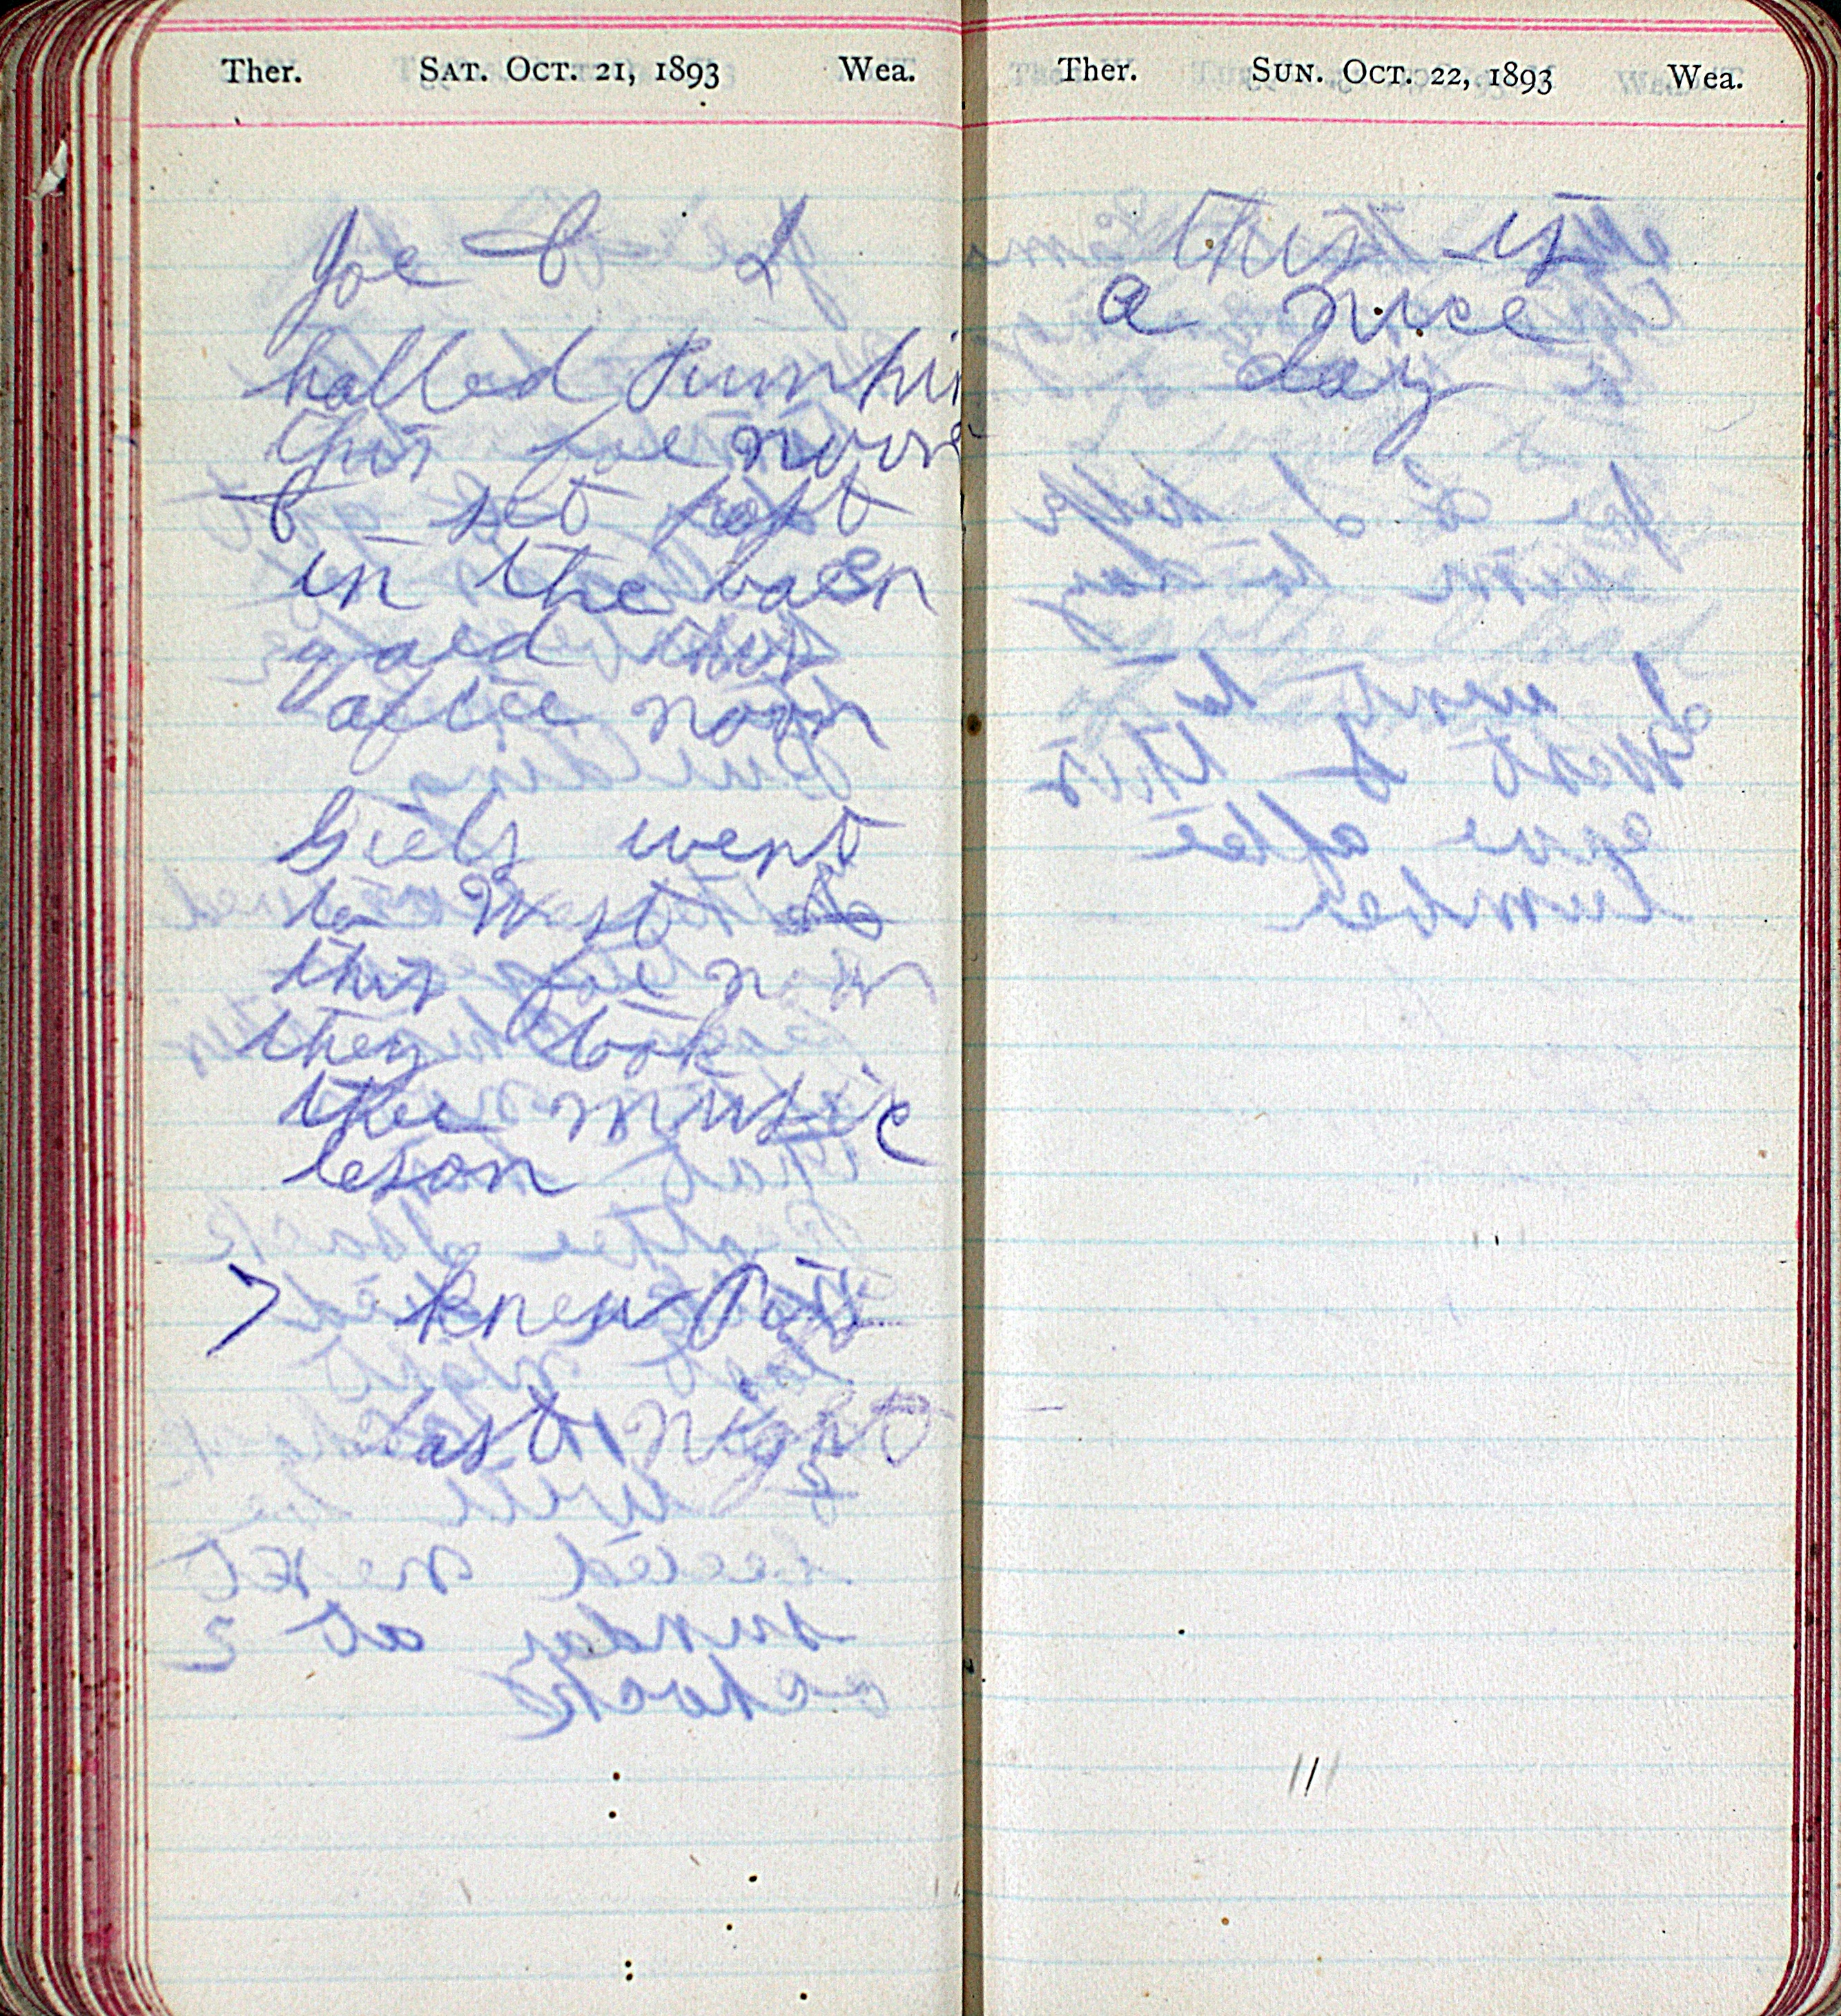 Ther. SAT. OCT. 21, 1893 Wea.
Joe & I
halled Pumpki
this fore noon
& set post
in the baern
yard this
after noon
Girls went
to West
this fore non
they took
ther music
leson
knew
last night
Ther. SUN. OCT. 22, 1893 Wea.
this is
a nice
day